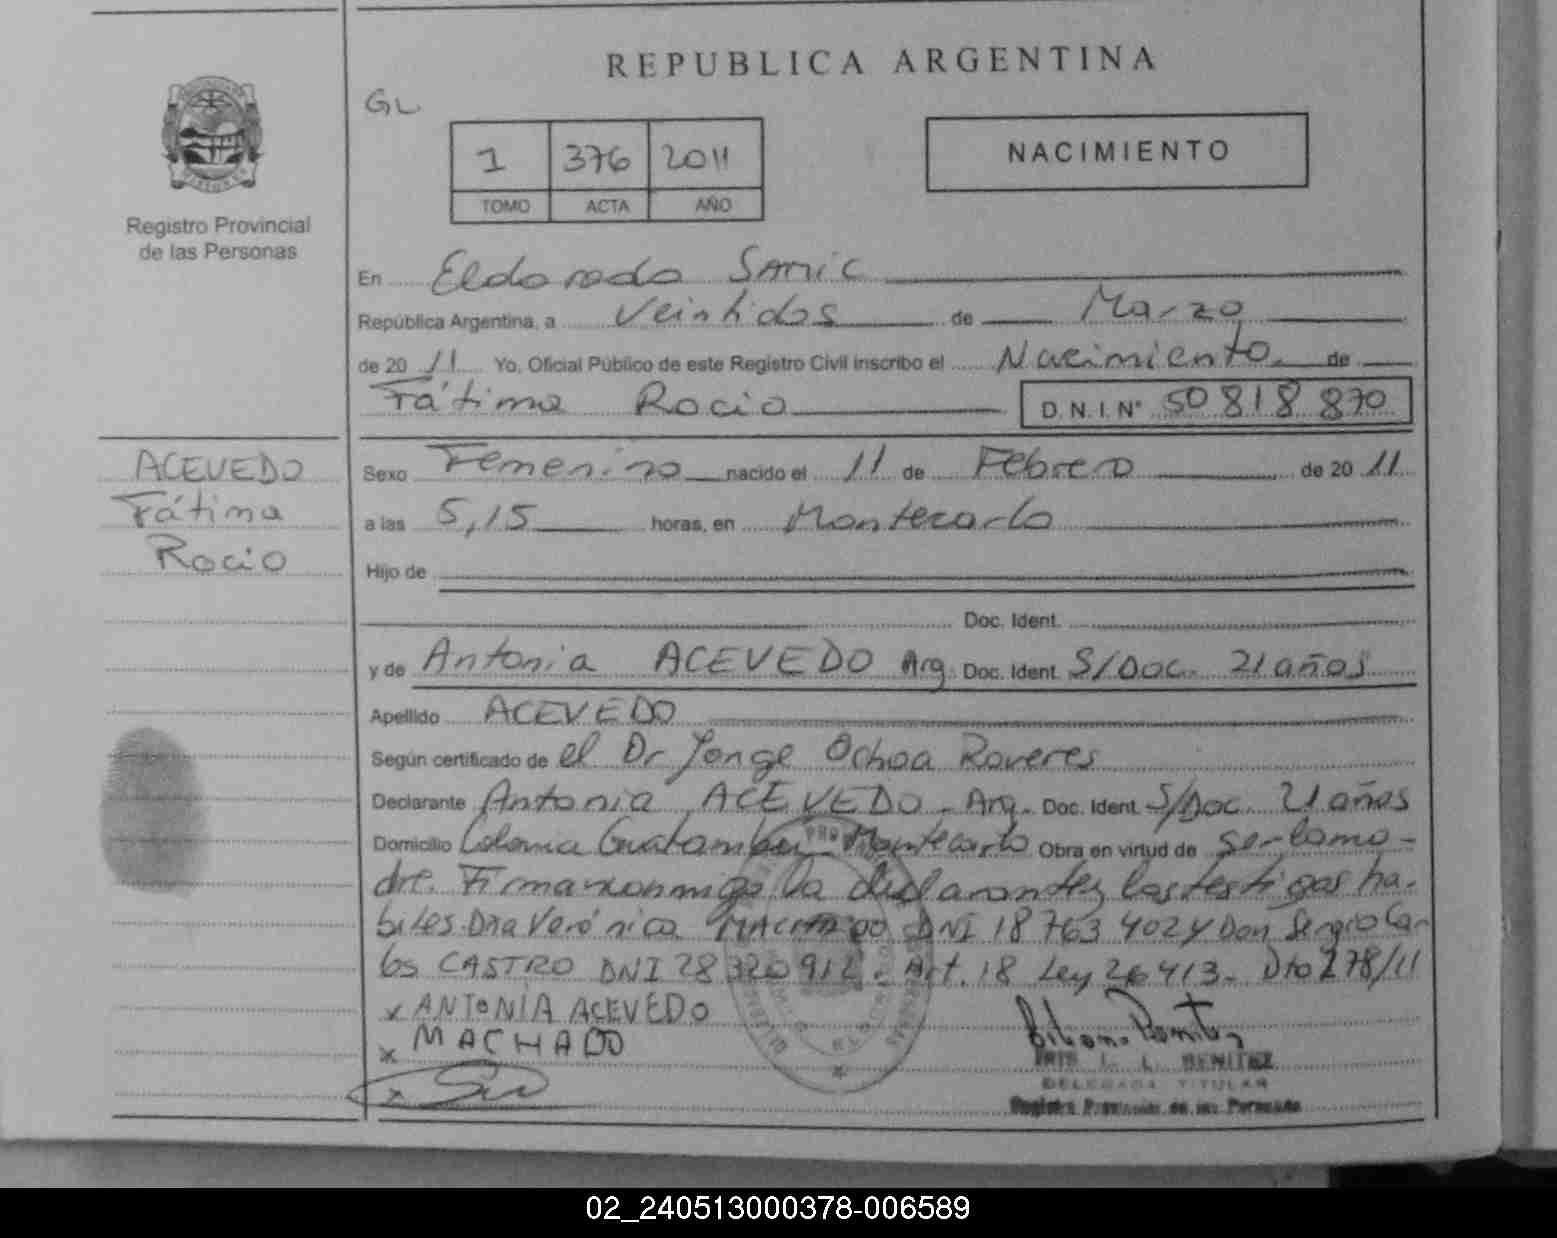 REPUBLICA ARGENTINA
GL
1 376 2011
TOMO ACTA AÑO
NACIMIENTO
Registro Provincial
de las Personas
En Eldorado SAMIC
República Argentina, a Veintidos de Marzo
de 2011 Yo, Oficial Público de este Registro Civil inscribo el Nacimiento de
Fátima Rocio D.N.I. Nº 50 818 870
ACEVEDO
Fátima
Rocio
Sexo Femenino nacido el 11 de Febrero de 2011
a las 5,15 horas, en Montecarlo
Hijo de
Doc. Ident.
y de Antonia ACEVEDO Arg. Doc. Ident. S/Doc. 21 años
Apellido ACEVEDO
Según certificado de el Dr Jorge Ochoa Roveres
Declarante Antonia ACEVEDO - Arg. Doc. Ident. S/Doc. 21 años
Domicilio Colonia Guatambu Montecarlo Obra en virtud de ser la ma-
dre. Firman conmigo la declarante y los testigos ha-
biles Dña Verónica DNI 18 763 402 y Don Sergio Car-
los CASTRO DNI 28 320 912 - Art. 18 Ley 26 413 - Dto 278/11
x ANTONIA ACEVEDO
x MACHADO
x
IRIS L. L. BENITEZ
DELEGADA TITULAR
Registro Provincial de las Personas
02_240513000378-006589